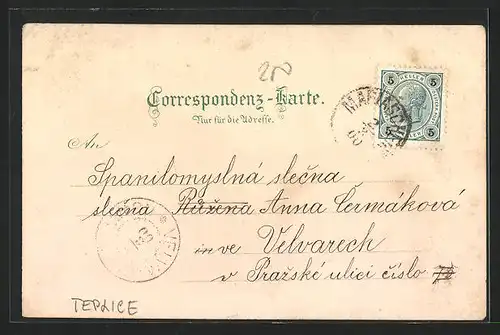 200
Correspondenz-Karte.
Nur für die Adresse.
5 HELLER 5
5 5
MARIASCH
00
An
Spanilomyslná slečna
slečna Růžena Anna Čermáková
in ve Velvarech
v Pražské ulici číslo
VELWA
TEPLICE